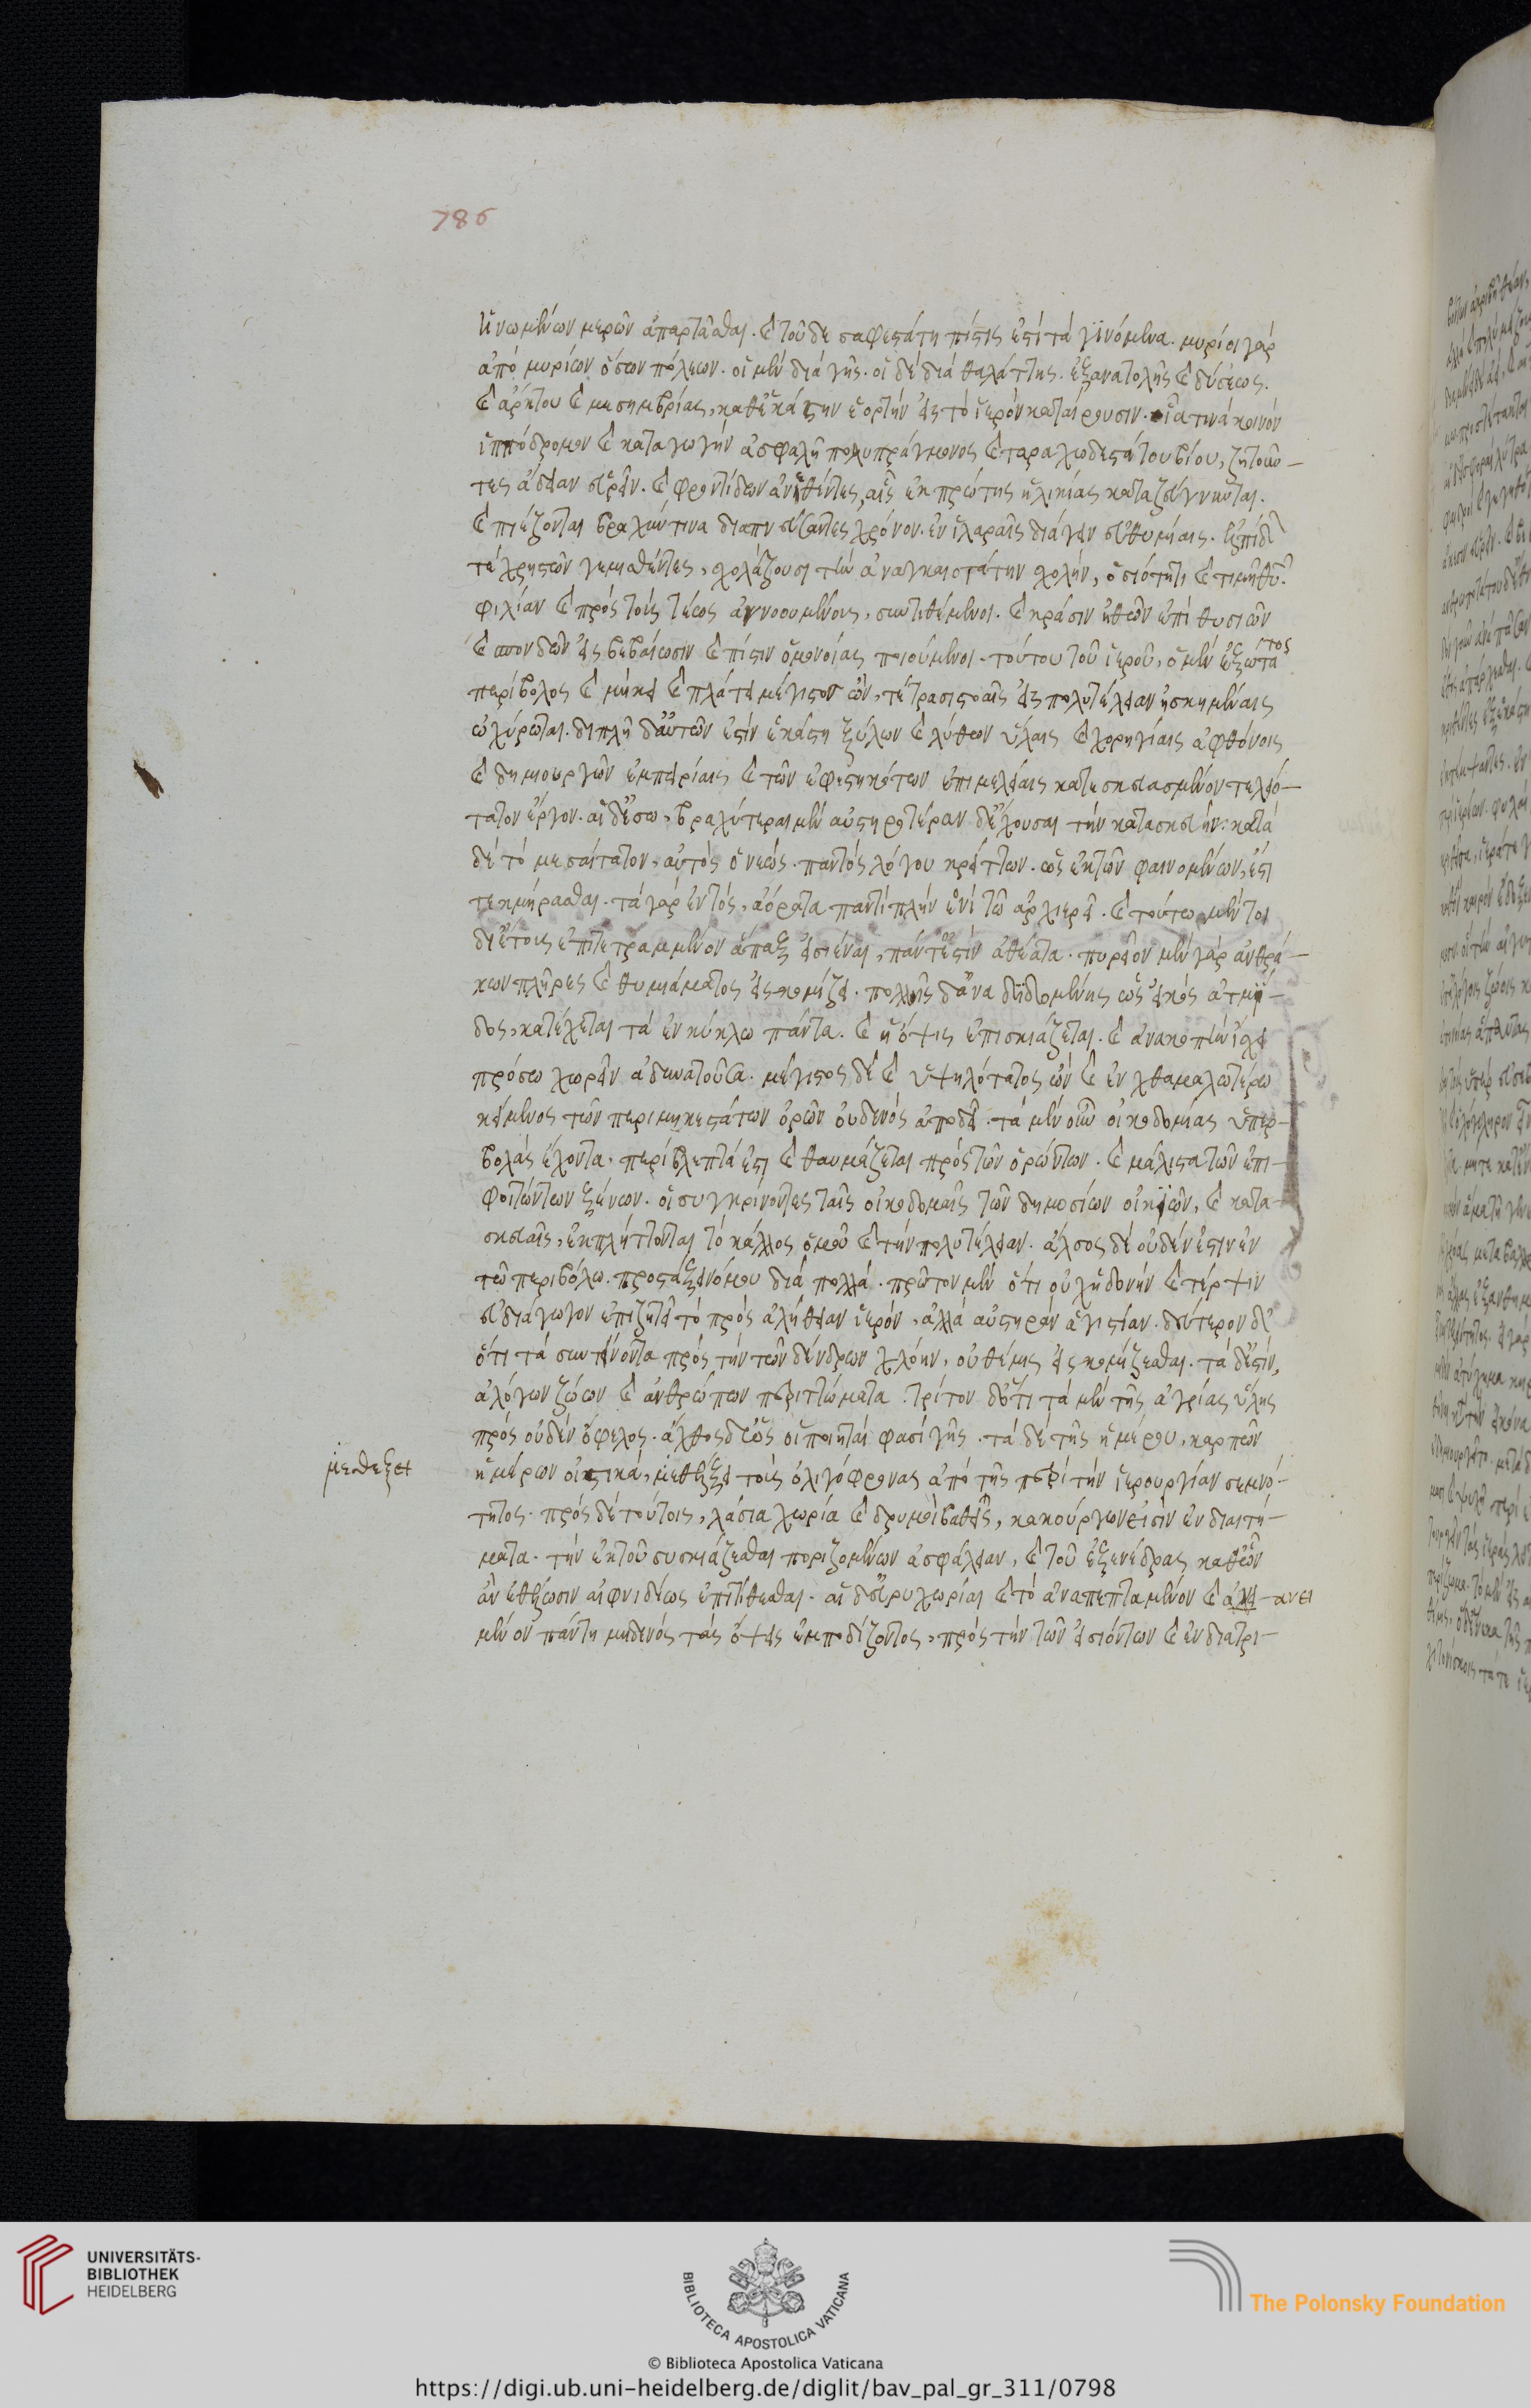 786
ἡνωμένων μερῶν ἀπαρτᾶσθαι. καὶ τοῦδε σαφεστάτη πίστις ἐστί τὰ γινόμενα. μυρίοι γὰρ
ἀπὸ μυρίων ὅσων πόλεων. οἱ μὲν διὰ γῆς. οἱ δὲ διὰ θαλάττης. ἐξ ἀνατολῆς καὶ δύσεως.
καὶ ἄρκτου καὶ μεσημβρίας, καθ' ἑκάστην ἑορτὴν εἰς τὸ ἱερὸν καταίρουσιν. οἷά τινα κοινὸν
ἱππόδρομον καὶ καταγωγὴν ἀσφαλῆ πολυπράγμονος καὶ ταραχωδεστάτου βίου, ζητοῦν-
τες ἄδειαν εὑρεῖν. καὶ φροντίδων ἀνεθέντες, αἷς ἐκ πρώτης ἡλικίας καταζεύγνυνται.
καὶ πιέζονται βραχύν τινα διαπνεύσαντες χρόνον. ἐν ἱλαραῖς διάγειν εὐθυμίαις. ἐλπίδων
τὲ χρηστῶν γεμισθέντες, σχολάζουσι τὴν ἀναγκαιοτάτην σχολὴν, ὁσιότητι καὶ τιμῇ θεοῦ.
φιλίαν καὶ πρὸς τοὺς τέως ἀγνοουμένους, συντιθέμενοι. καὶ κρᾶσιν ἠθῶν ἐπὶ θυσιῶν
καὶ σπονδῶν εἰς βεβαίωσιν καὶ πίστιν ὁμονοίας ποιούμενοι. τούτου τοῦ ἱεροῦ, ὁ μὲν ἐξωτάτος
περίβολος καὶ μήκει καὶ πλάτει μέγιστον ὢν, τέτρασι στοαῖς εἰς πολυτέλειαν ἠσκημέναις
ὠχύρωται. διπλῆ δ' αὐτῶν ἐστὶν ἑκάστη ξύλων καὶ λίθων ὕλαις καὶ χορηγίαις ἀφθόνοις
καὶ δημιουργῶν ἐμπειρίαις καὶ τῶν ἐφεστηκότων ἐπιμελείαις κατεσκευασμένον τελειό-
τατον ἔργον. αἱ δ' εἴσω, βραχύτεραι μὲν αὐστηροτέραν δ' ἔχουσαι τὴν κατασκευήν: κατὰ
δὲ τὸ μεσαίτατον, αὐτὸς ὁ νεὼς. παντὸς λόγου κρείττων. ὡς ἐκ τῶν φαινομένων, ἔστι
τεκμήρασθαι. τὰ γὰρ ἐντὸς, ἀόρατα παντὶ πλὴν ἑνὶ τῶ ἀρχιερεῖ. καὶ τούτω μέν τοι
δι' ἔτους ἐπιτετραμμένον ἅπαξ εἰσιέναι, πάντ' ἐστὶν ἀθέατα. πυρεῖον μὲν γὰρ ἀνθρά-
κων πλῆρες καὶ θυμιάματος εἰσκομίζει. πολλῆς δ' ἀναδιδομένης ὡς εἰκὸς ἀτμί-
δος, κατέχεται τὰ ἐν κύκλω πάντα. καὶ ἡ ὄψις ἐπισκιάζεται. καὶ ἀνακοπὴν ἴσχει
πρόσω χωρεῖν ἀδυνατοῦσα. μέγιστος δὲ καὶ ὑψηλότατος ὢν καὶ ἐν χθαμαλωτέρω
κείμενος τῶν περιμηκεστάτων ὀρῶν οὐδενὸς ἀποδεῖ. τὰ μὲν οὖν οἰκοδομίας ὑπερ-
βολὰς ἔχοντα, περίβλεπτά ἐστι καὶ θαυμάζεται πρὸς τῶν ὁρώντων. καὶ μάλιστα τῶν ἐπι-
φοιτώντων ξένων. οἳ συγκρίνοντες ταῖς οἰκοδομαῖς τῶν δημοσίων οἰκιῶν, καὶ κατα-
σκευαῖς, ἐκπλήττονται τὸ κάλλος ὁμοῦ καὶ τὴν πολυτέλειαν. ἄλσος δὲ οὐδέν ἐστιν ἐν
τῶ περιβόλω. προστάξει νόμου διὰ πολλά. πρῶτον μὲν ὅτι οὐχ ἡδονὴν καὶ τέρψιν
εὐδιάγωγον ἐπιζητεῖ τὸ πρὸς ἀλήθειαν ἱερὸν, ἀλλὰ αὐστηρὰν ἁγιστείαν. δεύτερον δὲ
ὅτι τὰ συντείνοντα πρὸς τὴν τῶν δένδρων χλόην, οὐ θέμις εἰσκομίζεσθαι. τὰ δ' ἐστὶν,
ἀλόγων ζώων καὶ ἀνθρώπων περιττώματα. τρίτον δ' ὅτι τὰ μὲν τῆς ἀγρίας ὕλης
πρὸς οὐδὲν ὄφελος. ἄχθος δ' ὡς οἱ ποιηταὶ φασὶ γῆς. τὰ δὲ τῆς ἡμέρου, καρπῶν
μεθέξει ἡμέρων οἰστικὰ, μεθέξει τοὺς ὀλιγόφρονας ἀπὸ τῆς περὶ τὴν ἱερουργίαν σεμνό-
τητος. πρὸς δὲ τούτοις, λάσια χωρία καὶ δρυμοὶ βαθεῖς, κακούργων εἰσὶν ἐνδιαιτή-
ματα. τὴν ἐκ τοῦ συσκιάζεσθαι ποριζομένων ἀσφάλειαν, καὶ τοῦ ἐξ ἐνέδρας καθ' ὧν
ἂν ἐθελήσωσιν αἰφνιδίως ἐπιτίθεσθαι. αἱ δ' εὐρυχωρίαι καὶ τὸ ἀναπεπταμένον καὶ ἀνει- ανει
μένον πάντη μηδενὸς τὰς ὄψεις ἐμποδίζοντος, πρὸς τὴν τῶν εἰσιόντων καὶ ἐνδιατρι-
UNIVERSITÄTS-
BIBLIOTHEK
HEIDELBERG
BIBLIOTECA APOSTOLICA VATICANA
The Polonsky Foundation
© Biblioteca Apostolica Vaticana
https://digi.ub.uni-heidelberg.de/diglit/bav_pal_gr_311/0798